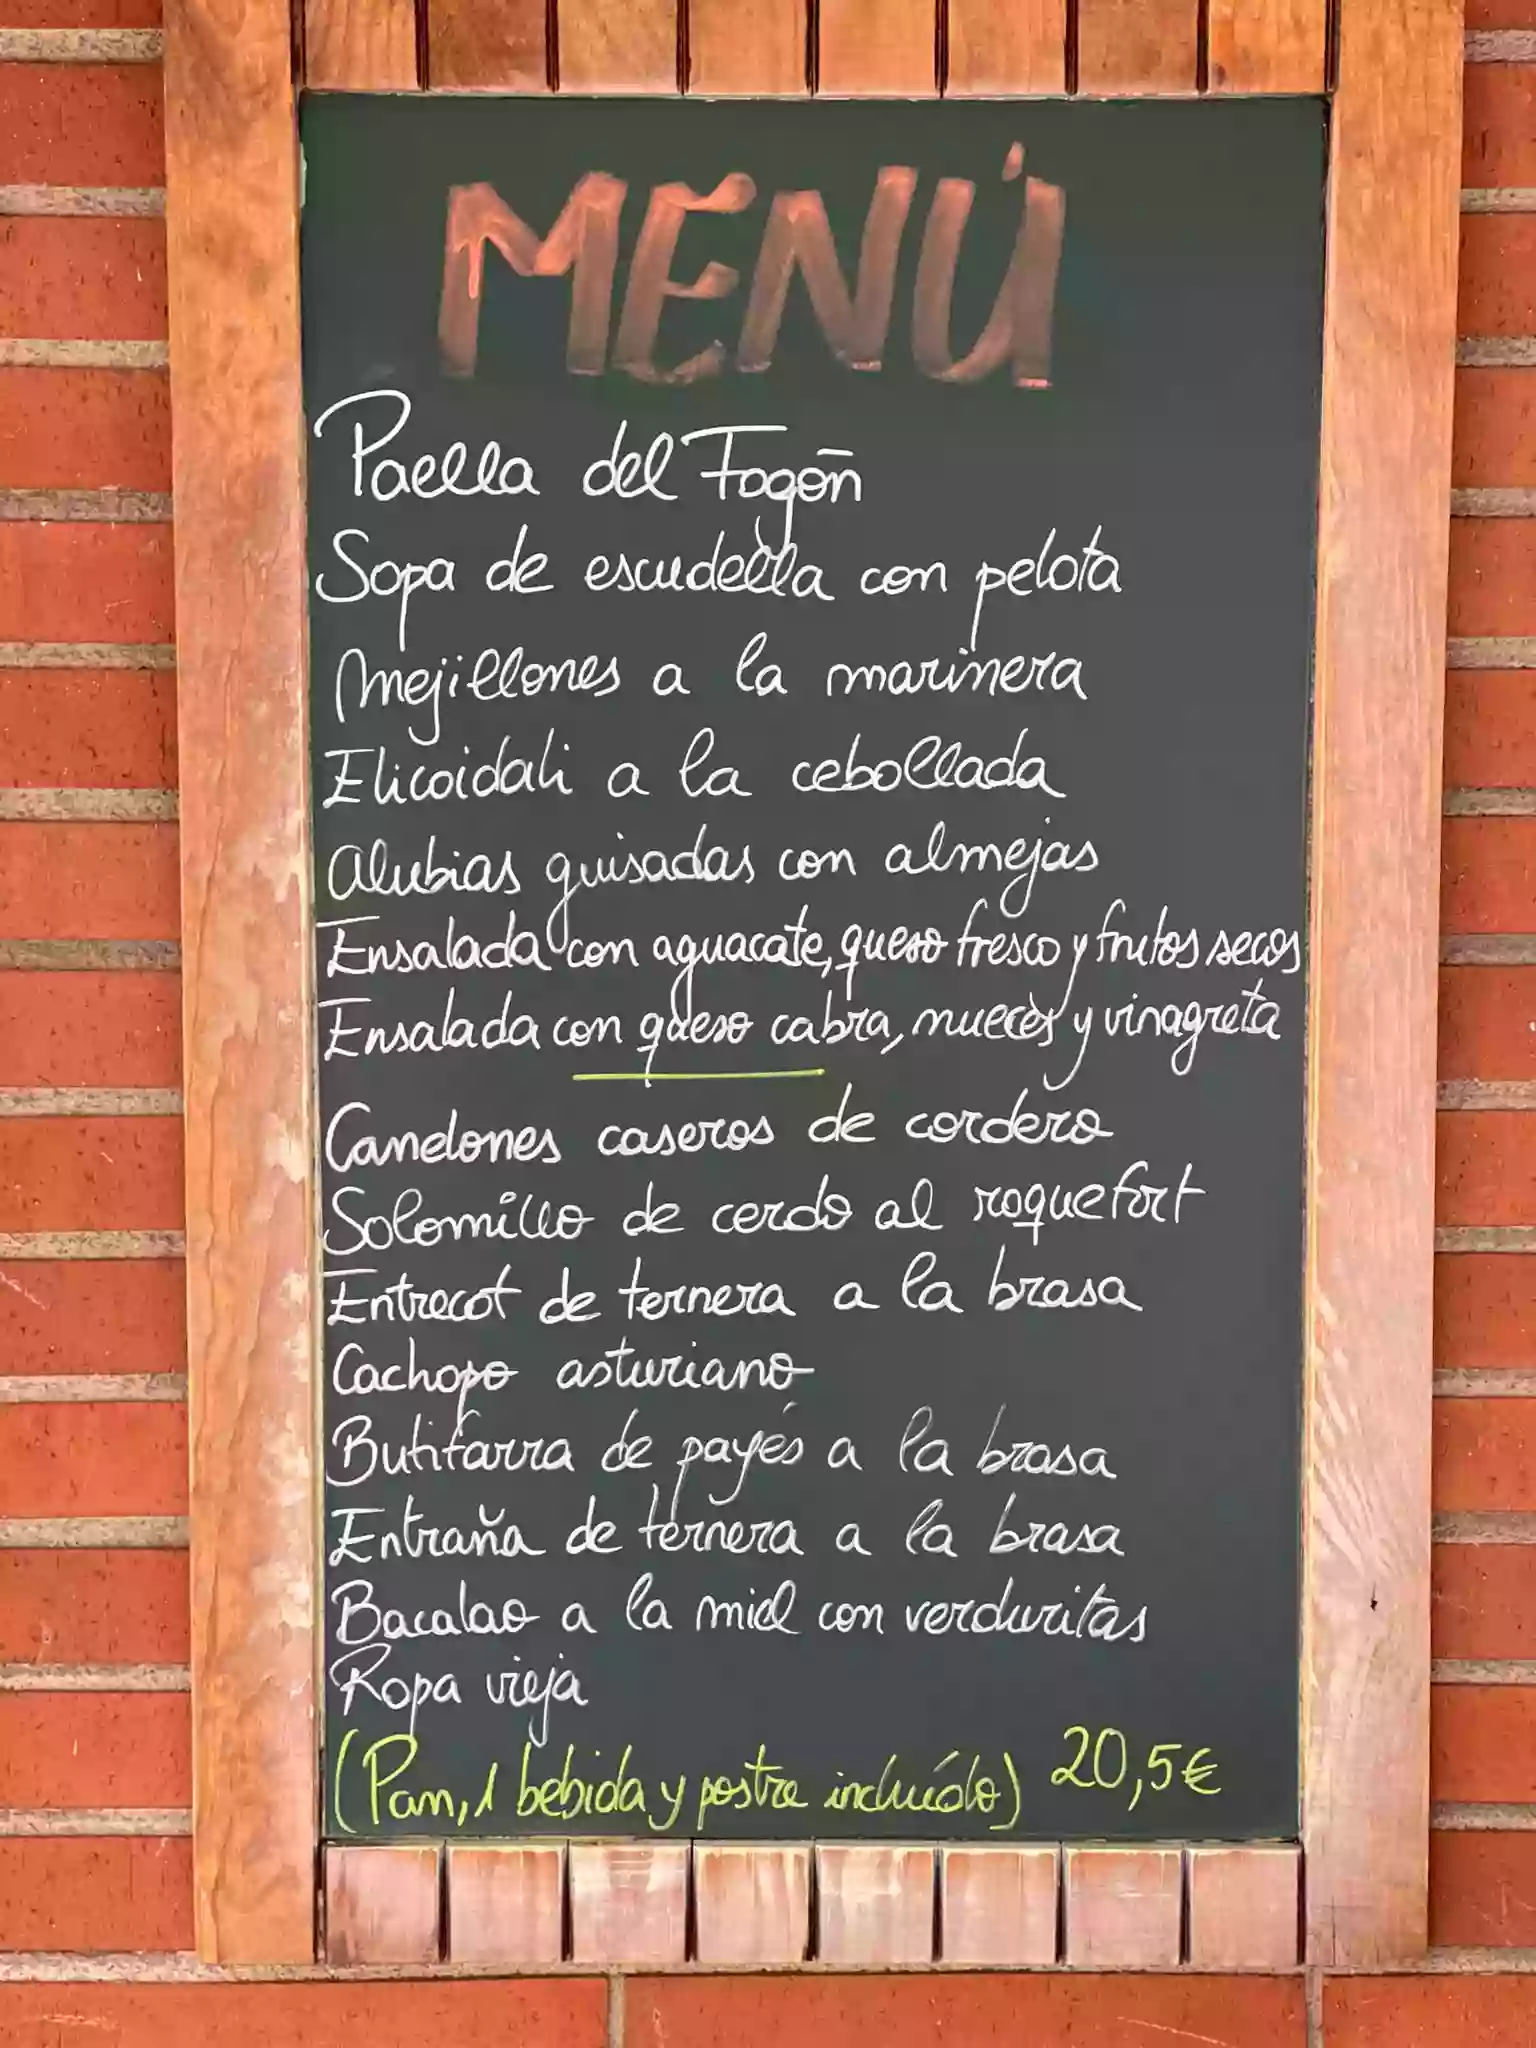 MENÚ
Paella del Fogōn
Sopa de escudella con pelota
Mejillones a la marinera
Elicoidali a la cebollada
Alubias guisadas con almejas
Ensalada con aguacate, queso fresco y frutos secos
Ensalada con queso cabra, nueces y vinagreta
Canelones caseros de cordero
Solomillo de cerdo al roquefort
Entrecot de ternera a la brasa
Cachopo asturiano
Butifarra de payés a la brasa
Entraña de ternera a la brasa
Bacalao a la miel con verduritas
Ropa vieja
(Pan, 1 bebida y postre incluído) 20,5€